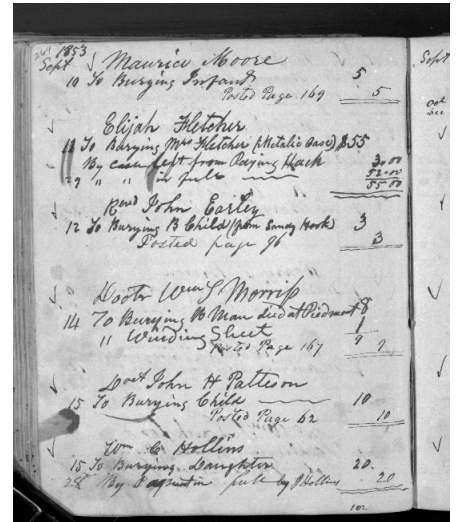 1853
Sept Maurice Moore
10 To Burying Infant 5
Posted Page 169 5
Elijah Fletcher
11 To Burying Mrs Fletcher (Metalic Case) $55
By cash left from Paying Hack 3.00
29 " " in full 52.00
55 00
Revd John Earley
12 To Burying B Child (from Sandy Hook) 3
Posted page 96 3
Doctr Wm S Morriss
14 To Burying B Man died at Piedmont 8
" Winding Sheet 1
Posted Page 167 9 9
Doct John H Patteson
15 To Burying Child 10
Posted Page 62 10
Wm C Hollins
15 To Burying Daughter 20
28 By Payment in full by J Hollins 20
102
Sept
Oct